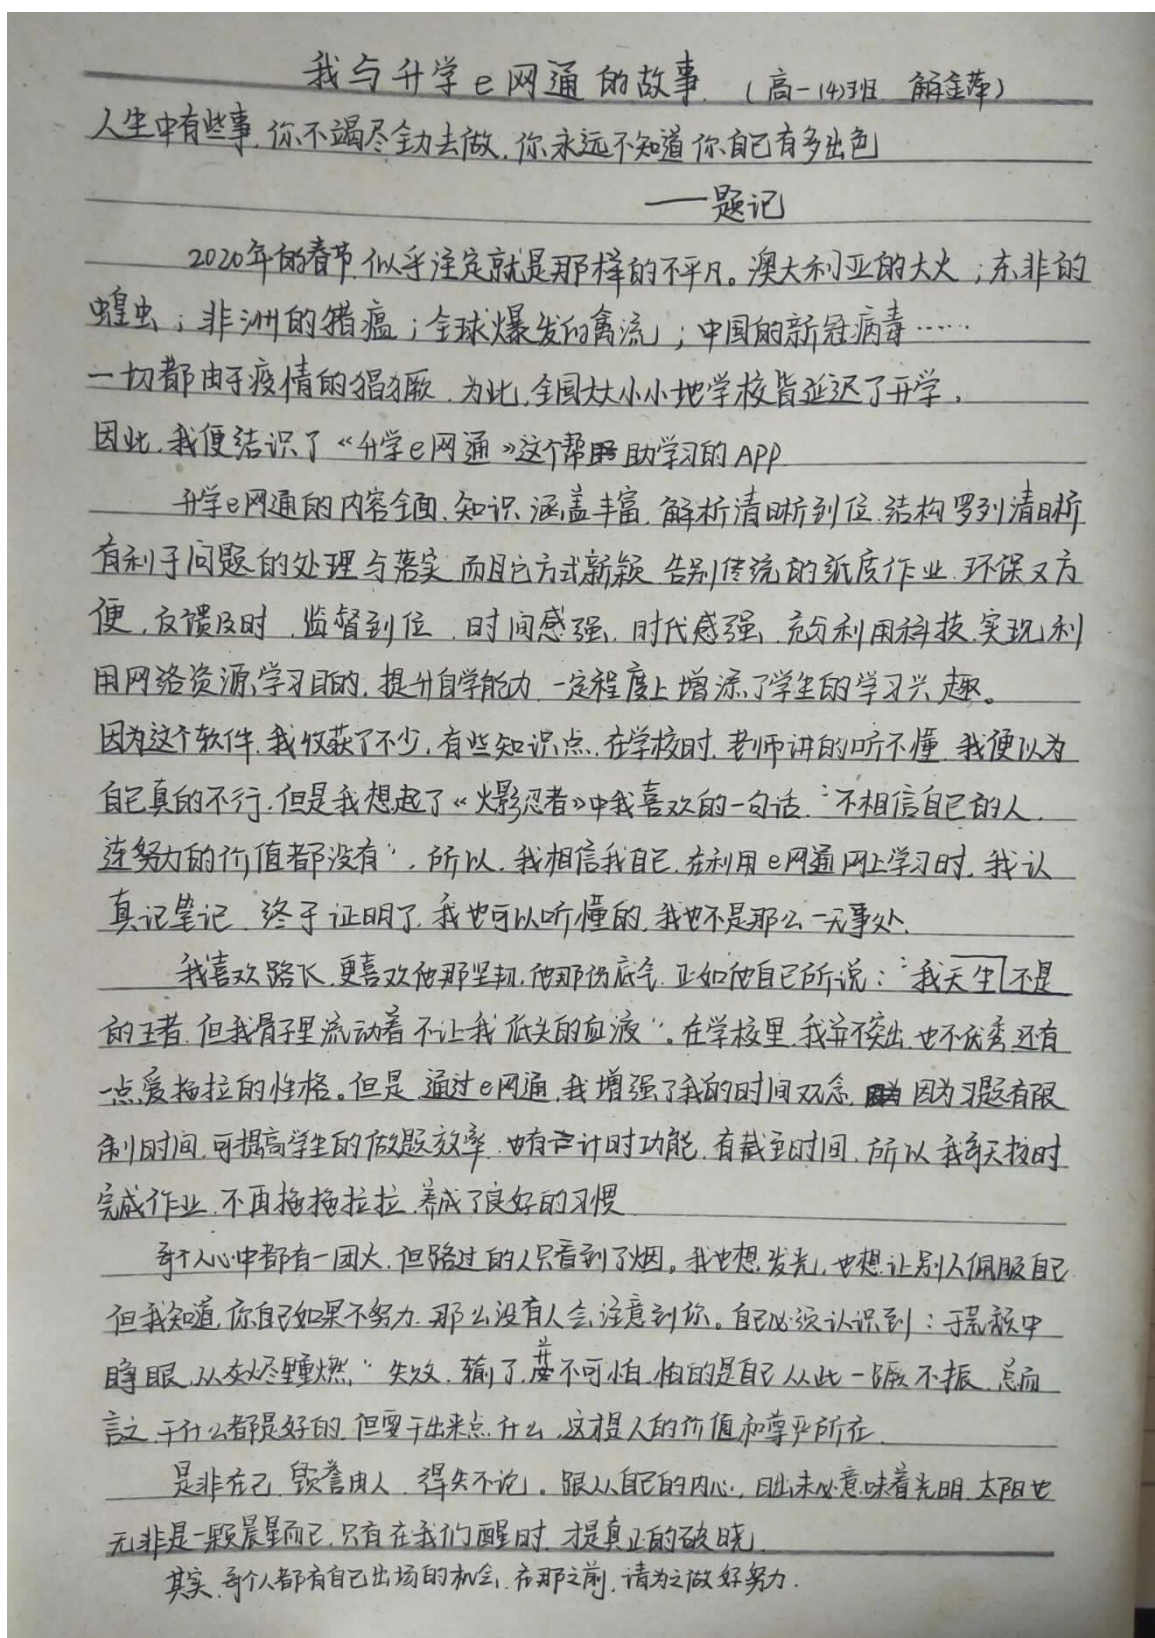 我与升学e网通的故事. (高一(4)班 解金萍)
人生中有些事,你不竭尽全力去做,你永远不知道你自己有多出色
——题记
2020年的春节,似乎注定就是那样的不平凡。澳大利亚的大火;东非的
蝗虫;非洲的猪瘟;全球爆发的禽流;中国的新冠病毒……
一切都由于疫情的猖獗,为此,全国大大小小地学校皆延迟了开学,
因此,我便结识了《升学e网通》这个帮助学习的APP
升学e网通的内容全面,知识涵盖丰富,解析清晰到位,结构罗列清晰
有利于问题的处理与落实,而且它方式新颖,告别传统的纸质作业,环保又方
便,反馈及时,监督到位,时间感强,时代感强,充分利用科技,实现利
用网络资源学习目的,提升自学能力,一定程度上增添了学生的学习兴趣。
因为这个软件,我收获了不少,有些知识点,在学校时,老师讲的听不懂,我便以为
自己真的不行,但是我想起了《火影忍者》中我喜欢的一句话:“不相信自己的人,
连努力的价值都没有”,所以,我相信我自己,在利用e网通网上学习时,我认
真记笔记,终于证明了,我也可以听懂的,我也不是那么一无事处,
我喜欢路飞,更喜欢他那坚韧,他那份底气,正如他自己所说:“我天生不是
的王者,但我骨子里流动着不让我低头的血液”。在学校里,我并不突出,也不优秀,还有
一点爱拖拉的性格。但是,通过e网通,我增强了我的时间观念,因为习题有限
制时间,可提高学生的做题效率,也有计时功能,有截至时间,所以我每天按时
完成作业,不再拖拖拉拉,养成了良好的习惯
每个人心中都有一团火,但路过的人只看到了烟。我也想发光,也想让别人佩服自己
但我知道,你自己如果不努力,那么没有人会注意到你。自己必须认识到:于荒颓中
睁眼,从灰烬里重燃,“失败,输了,并不可怕,怕的是自己从此一蹶不振,总而
言之,干什么都是好的,但要干出来点什么,这才是人的价值和尊严所在,
是非在己,毁誉由人,得失不论。跟从自己的内心,日出未必意味着光明,太阳也
无非是一颗晨星而已,只有在我们醒时,才是真正的破晓,
其实,每个人都有自己出场的机会,在那之前,请为之做好努力.